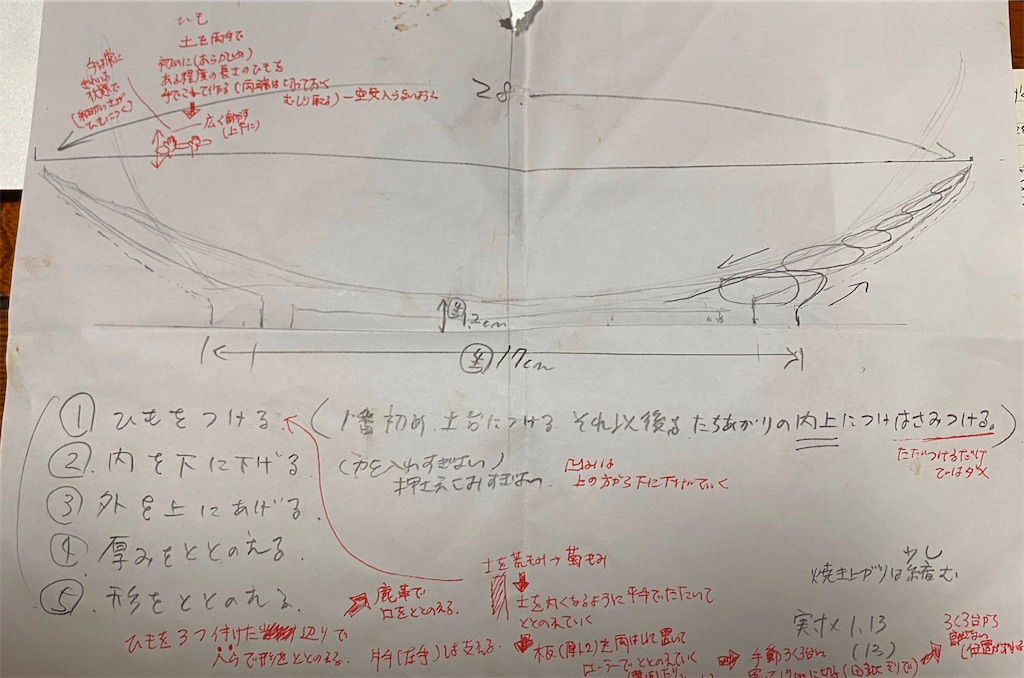 ひも
土を両手で
初めに(あらかじめ)
ある程度の長さのひもを
手でこねて作る(両端は切っておく
むしり取る)
手は常に
きれいな
状態で
広く動かす
(上下に)
28
1.2cm
17cm
① ひもをつける (1番初め、土台につける それ以後は たちあがりの内上につけ はさみつける。)
ただつけるだけ
ではダメ
② 内を下に下げる (力を入れすぎない)
押えてみすぎない
凹みは
上の方から下に下げていく
③ 外を上にあげる
④ 厚みをととのえる
⑤ 形をととのえる
焼き上がりは少し縮む
実寸×1.13
(13)
土を荒もみ→菊もみ
土を丸くなるように平手でたたいて
ととのえていく
板(厚1.2)を両はしに置いて
ローラーでととのえていく
鹿革で
口をととのえる。
ひもを3つ付けた辺りで
へらで形をととのえる。
片手(左手)は支える。
手動ろくろ台に
ろくろ台から